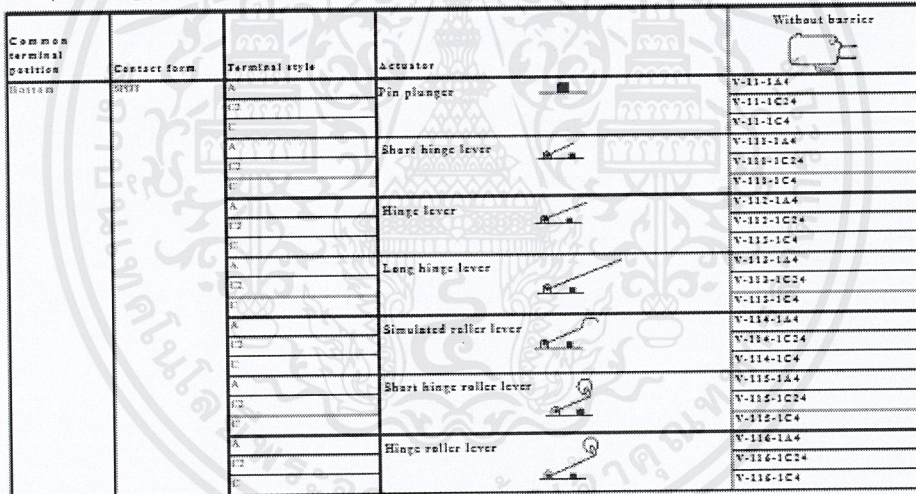 Common terminal position Contact form Terminal style Actuator Without barrier
Bottom SPDT A Pin plunger V-11-1A4
C2 V-11-1C24
C V-11-1C4
A Short hinge lever V-111-1A4
C2 V-111-1C24
C V-111-1C4
A Hinge lever V-112-1A4
C2 V-112-1C24
C V-112-1C4
A Long hinge lever V-113-1A4
C2 V-113-1C24
C V-113-1C4
A Simulated roller lever V-114-1A4
C2 V-114-1C24
C V-114-1C4
A Short hinge roller lever V-115-1A4
C2 V-115-1C24
C V-115-1C4
A Hinge roller lever V-116-1A4
C2 V-116-1C24
C V-116-1C4